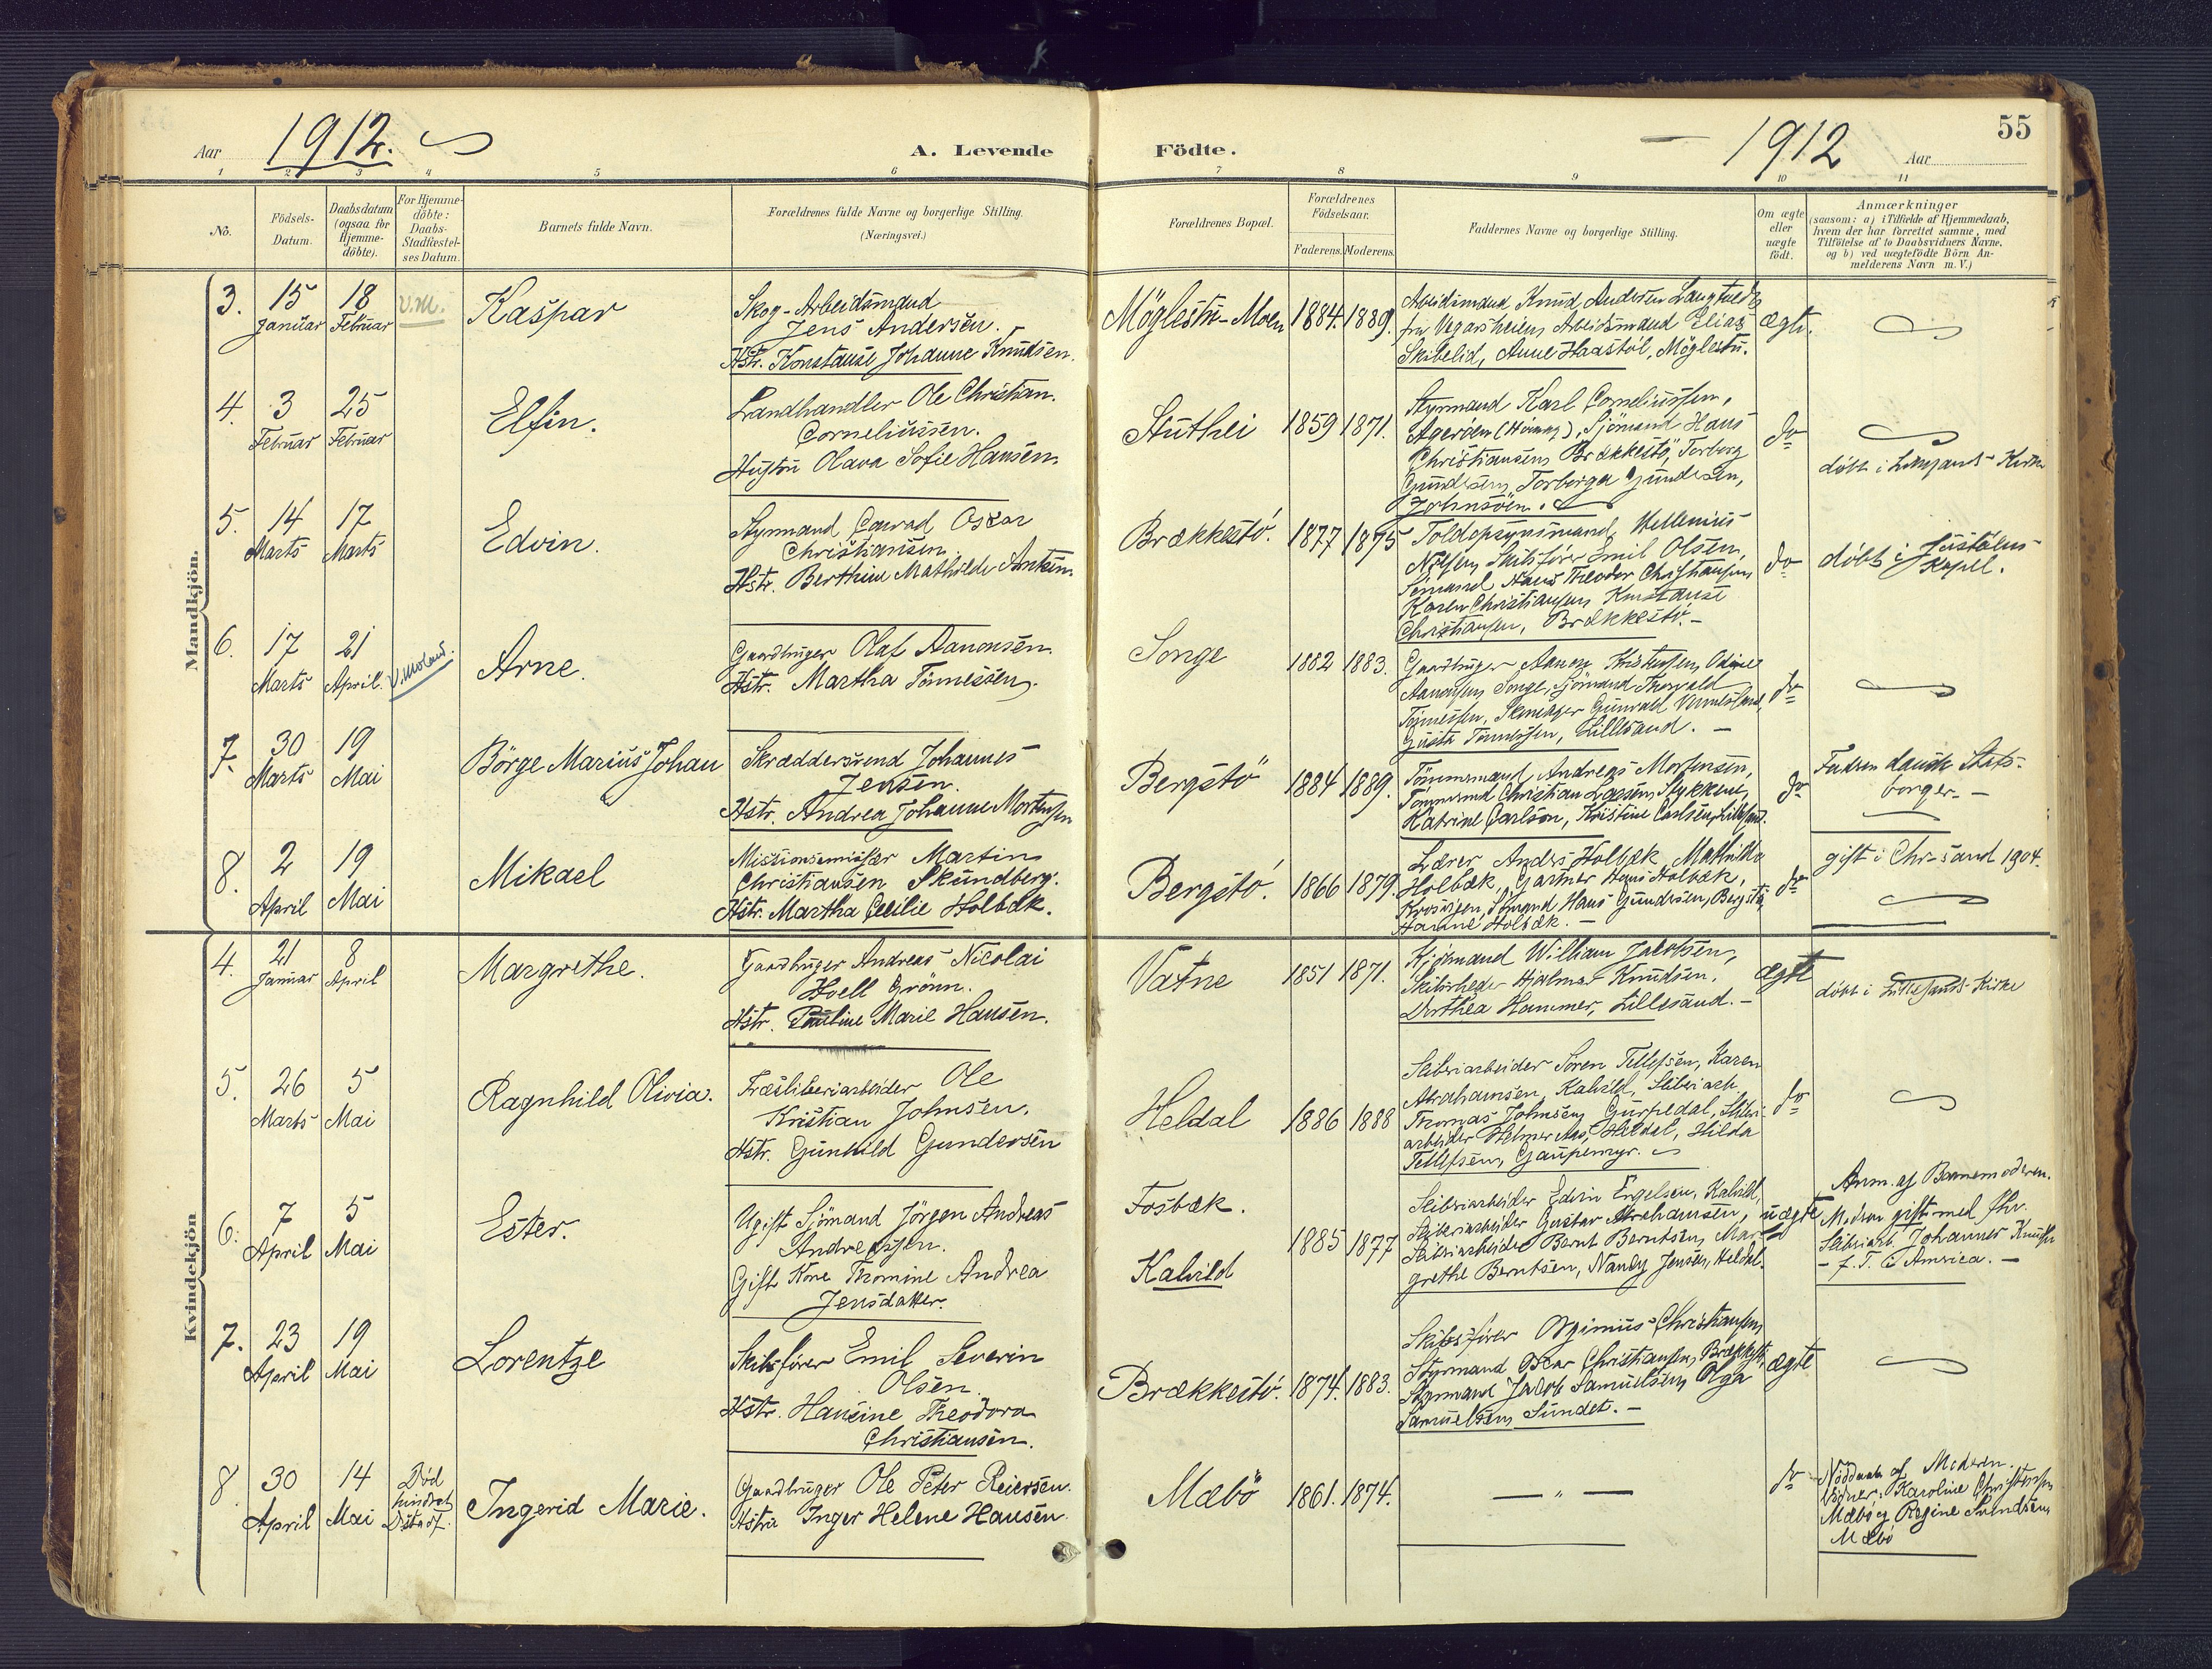 Aar 1912.
A. Levende
Födte.
1912 Aar
55
1 2 3 4 5 6 7 8 9 10 11
No.
Födsels-
Datum.
Daabsdatum
(ogsaa for
Hjemme-
döbte).
For Hjemme-
döbte:
Daabs-
Stadfæstel-
ses Datum.
Barnets fulde Navn.
Forældrenes fulde Navne og borgerlige Stilling.
(Næringsvei.)
Forældrenes Bopæl.
Forældrenes
Födselsaar.
Faderens. Moderens.
Faddernes Navne og borgerlige Stilling.
Om ægte
eller
uægte
födt.
Anmærkninger
(saasom: a) i Tilfælde af Hjemmedaab,
hvem der har forrettet samme, med
Tilföielse af to Daabsvidners Navne,
og b) ved uægtefödte Börn An-
melderens Navn m.V.)
Mandkjön.
3. 15 Januar
18 Februar
V.M.
Kaspar
Skog-Arbeidsmand
Jens Andersen.
Hstr. Konstanse Johanne Knudsen.
Möglestu-Moen 1884. 1889.
Arbeidsmand Knud Andersen
fra Vegarsheien, Arbeidsmand Elias
Skibelid, Anne Haastöl, Möglestu.
ægte.
4. 3 Februar
25 Februar
Elfin.
Landhandler Ole Christian
Corneliussen.
Hustru Olava Sofie Hansen.
Stuthei 1859 1871.
Styrmand Karl Corneliussen,
Ageröen, Sjömand Hans
Christiansen, Brækkestö, Torborg
Gundersen, Torborga Gundersen,
Johnsöen.
do
döbt i Lillesands Kirke
5. 14 Marts
17 Marts
Edvin.
Styrmand Conrad Oskar
Christiansen.
Hstr. Berthine Mathilde Antsen.
Brækkestö. 1877 1875
Toldopsynsmand Mellenius
Nilsen, Skibsförer Emil Olsen,
Sömand Hans Theodor Christiansen,
Karen Christiansen, Konstanse
Christiansen, Brækkestö.
do
döbt i Justölens
Kapel.
6. 17 Marts
21 April.
V. Moland.
Arne.
Gaardbruger Olaf Aanonsen.
Hstr. Martha Tönnessen.
Songe 1882 1883.
Gaardbruger Aanon Kristensen, Odine
Aanonsen, Songe, Sjömand Thorvald
Tönnessen, Gunvald Vennesland,
Gusta Tönnessen, Lillesand.
do
7. 30 Marts
19 Mai
Börge Marius Johan
Skræddersvend Johannes
Jensen.
Hstr. Andrea Johanne Mortensen
Bergstö 1884 1889.
Tömmermand Andreas Mortensen,
Tömmermd Christian Larsen, Stykkene,
Katrine Carlson, Kristine Carlsen, Lillesand.
do
Faderen dansk Stats-
borger.
8. 2 April
19 Mai
Mikael
Missionsemissær Martin
Christiansen Skundberg.
Hstr. Martha Cecilie Holbæk.
Bergstö. 1866 1879.
Lærer Anders Holbæk, Mathilde
Holbæk, Gartner Hans Holbæk,
Krosvigen, Sömand Hans Gundersen, Bergstö,
Hanne Holbæk.
do
gift i Chr-sand 1904.
Kvindekjön
4. 21 Januar
8 April
Margrethe.
Gaardbruger Andreas Nicolai
Hoell Grönn.
Hstr. Pauline Marie Hansen.
Vatne 1851 1871.
William Jakobsen,
Skibsreder Hjalmar Knudsen,
Dorthea Hammer, Lillesand.
ægte
döbt i Lillesands Kirke
5. 26 Marts
5 Mai
Ragnhild Olivia.
Træsliberiarbeider Ole
Kristian Johnsen.
Hstr. Gunhild Gundersen
Heldal 1886 1888
Sliberiarbeider Sören Tellefsen, Karen
Abrahamsen, Kalvild, Sliberiarb.
Thomas Johnsen, Gurpedal, Sliberi-
arbeider Helmer Aas, Heldal, Hilda
Tellefsen, Gaupemyr.
do
6. 7 April
5 Mai
Ester.
Ugift Sjömand Jörgen Andreas
Andreassen.
Gift Kone Thomine Andrea
Jensdatter.
Fosbæk.
Kalvild
1885 1877
Sliberiarbeider Edvin Engelsen, Kalvild,
Sliberiarbeider Gustav Abrahamsen,
Sliberiarbeider Bernt Berntsen, Mar-
grethe Berntsen, Nandy Jensen, Heldal.
uægte
Anm. af Barnemoderen.
Moderen gift med fhv.
Sliberiarb. Johannes Knudsen
- f. T. i Amerika. -
7. 23 April
19 Mai
Lorentze
Skibsförer Emil Severin
Olsen.
Hstr. Hansine Theodora
Christiansen.
Brækkestö. 1874. 1883.
Skibsförer Christiansen,
Styrmand Oscar Christiansen, Brækkestö,
Styrmand Jakob Samuelsen, Olga
Samuelsen, Sundet.
ægte
8. 30 April
14 Mai
Död
hindret
Ingerid Marie.
Gaardbruger Ole Peter Reiersen.
Hustru Inger Helene Hansen.
Mæbö 1861. 1874.
— " —
do
Nöddaab af Moderen.
Vidner: Karoline Christensen
Mæbö og Regine Svendsen,
Mæbö